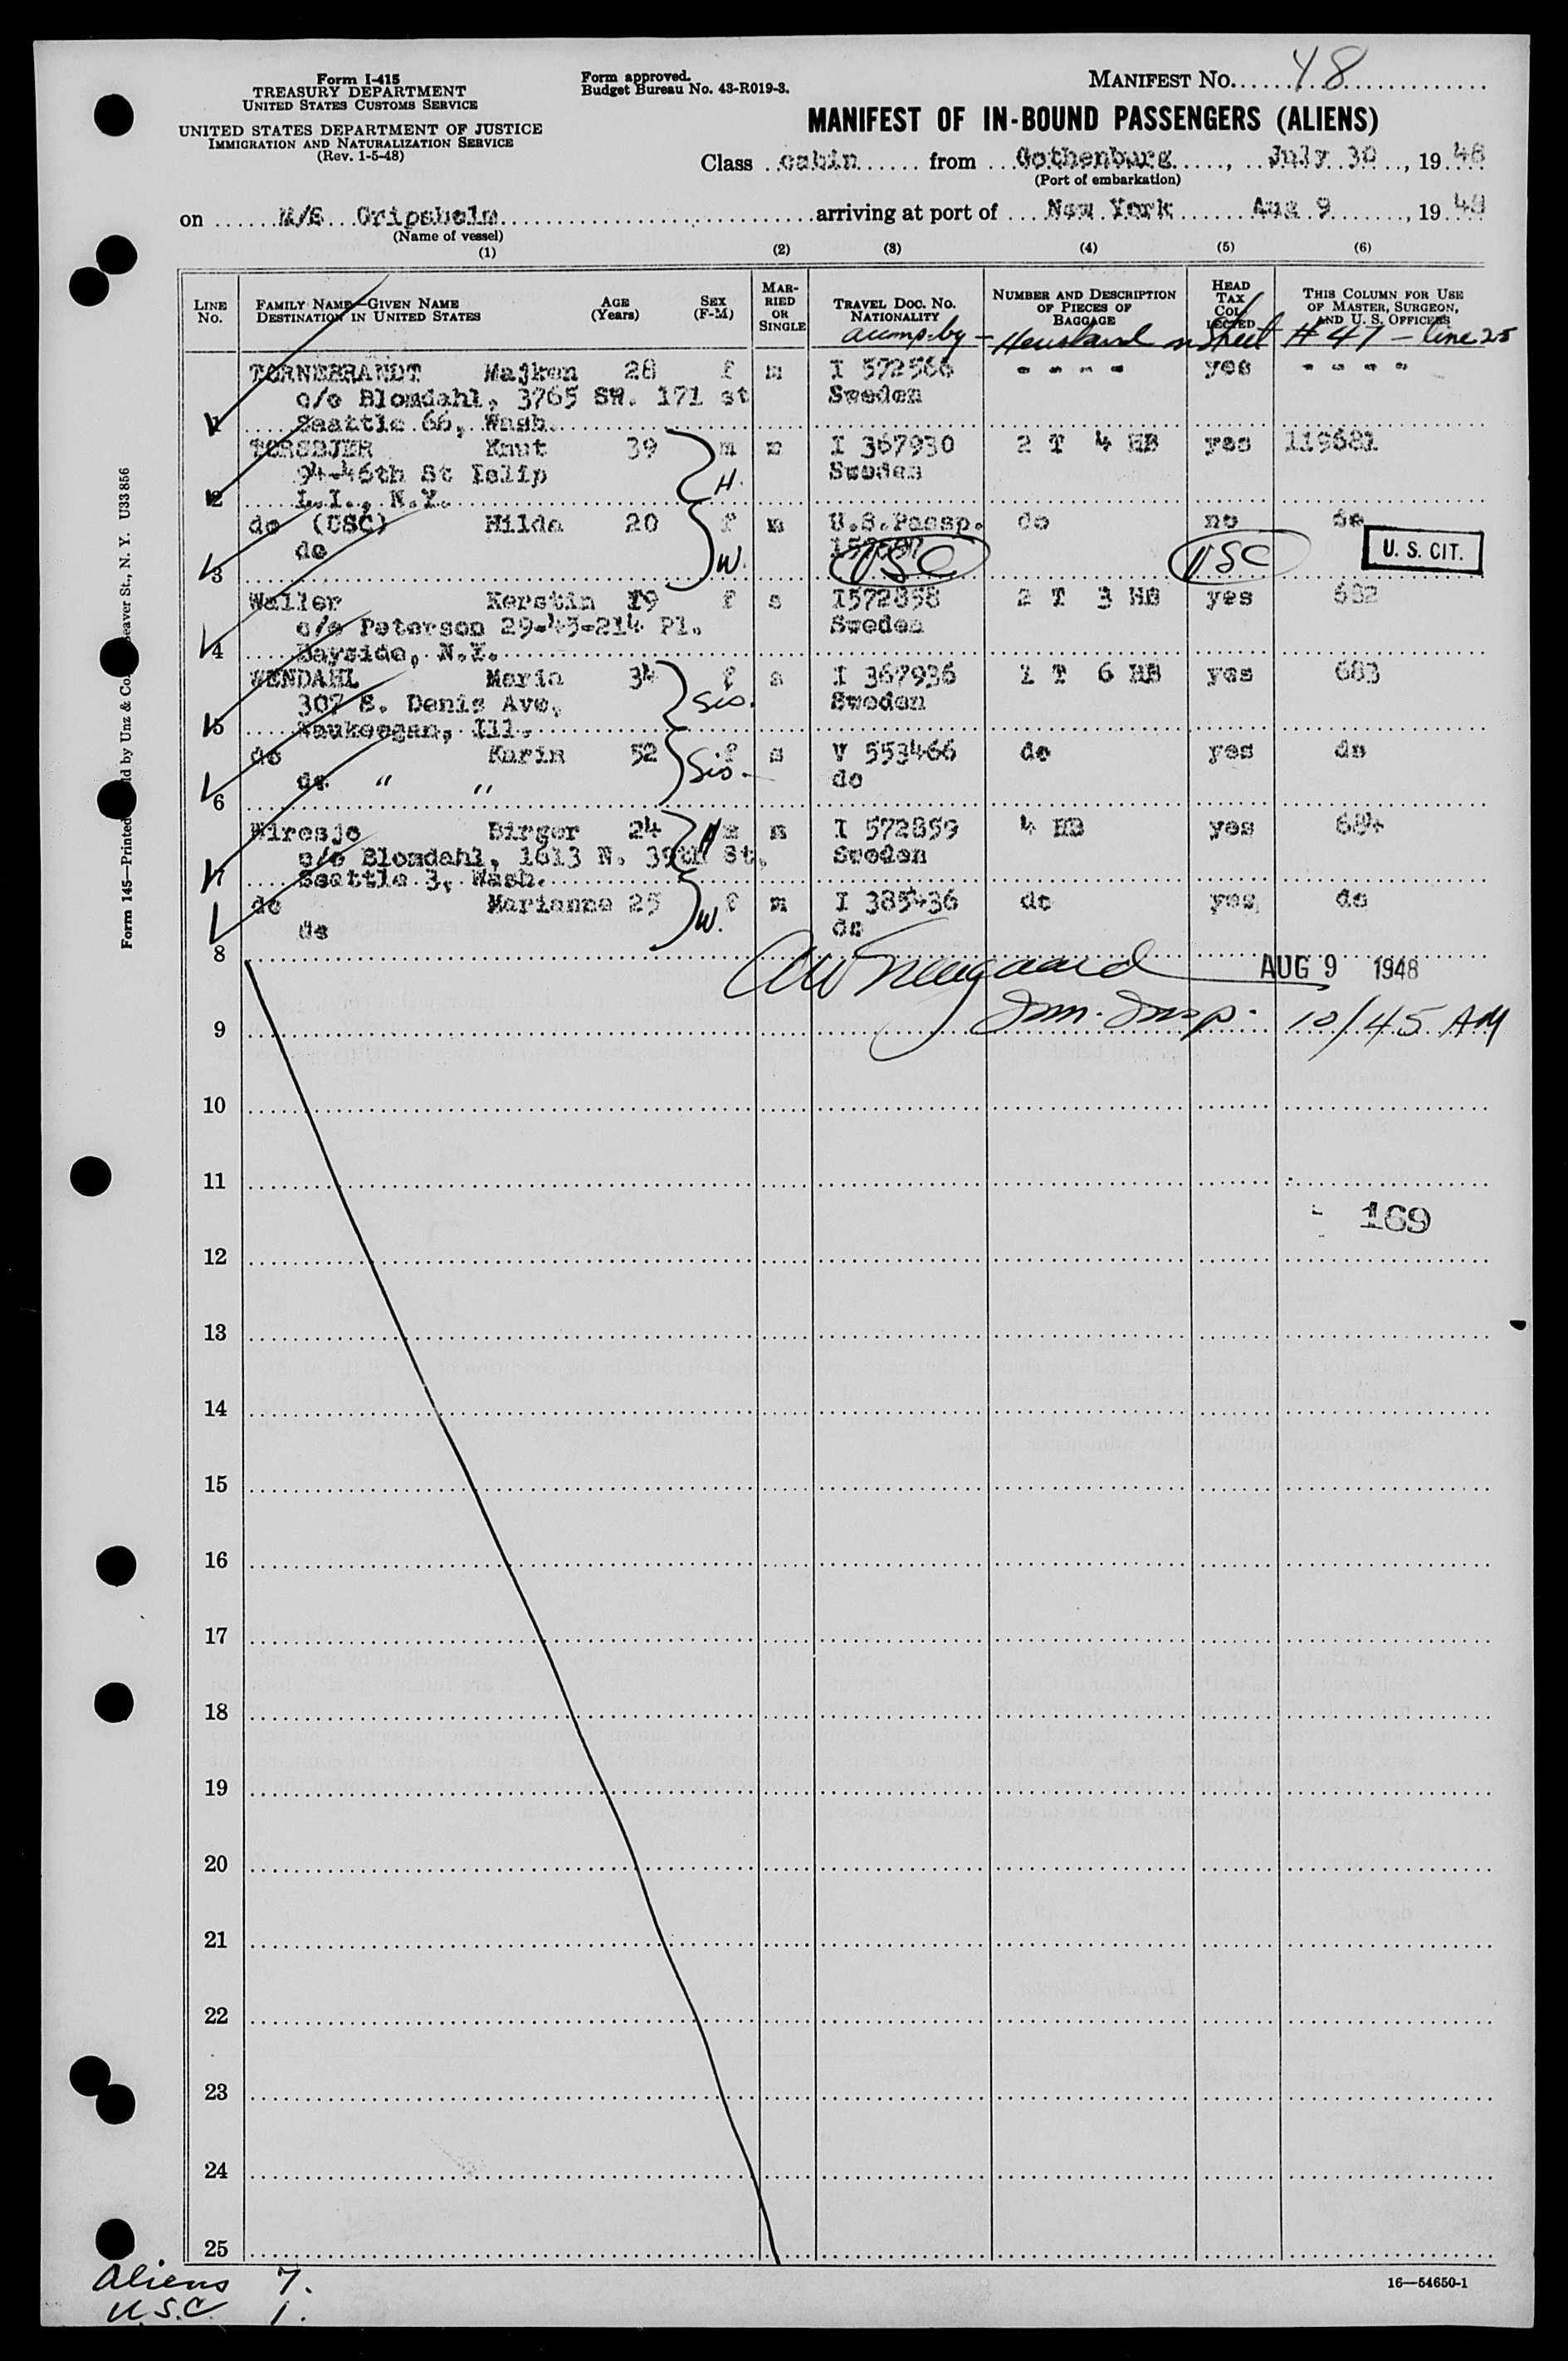 Form I-415
TREASURY DEPARTMENT
UNITED STATES CUSTOMS SERVICE
UNITED STATES DEPARTMENT OF JUSTICE
IMMIGRATION AND NATURALIZATION SERVICE
(Rev. 1-5-48)
Form approved.
Budget Bureau No. 43-R019-3.
MANIFEST NO. 48
MANIFEST OF IN-BOUND PASSENGERS (ALIENS)
Class cabin from Gothenburg, July 30, 1948
(Port of embarkation)
on M/S Gripsholm arriving at port of New York Aug 9, 1948
(Name of vessel)
(1) (2) (3) (4) (5) (6)
LINE NO. FAMILY NAME—GIVEN NAME DESTINATION IN UNITED STATES AGE (Years) SEX (F-M) MARRIED OR SINGLE TRAVEL DOC. NO. NATIONALITY NUMBER AND DESCRIPTION OF PIECES OF BAGGAGE HEAD TAX COLLECTED THIS COLUMN FOR USE OF MASTER, SURGEON, AND U. S. OFFICERS
accomp. by - Husband on Sheet # 47 - line 25
TORNEBRANDT Majken 28 f m I 572566 - - - - yes - - - -
c/o Blomdahl, 3765 SW. 171 st Sweden
1 Seattle 66, Wash.
TORSBJER Knut 39 m m I 367930 2 T 4 HB yes 119681
94-46th St Islip H. Sweden
2 L.I., N.Y.
do (USC) Hilda 20 f m U.S.Passp. do no do
do W. USC USC U. S. CIT.
3
Waller Kerstin 19 f s I572858 2 T 3 HB yes 682
c/o Peterson 29-45-214 Pl. Sweden
4 Bayside, N.Y.
WENDAHL Maria 34 f s I 367936 1 T 6 HB yes 683
307 S. Denis Ave, Sis. Sweden
5 Waukeegan, Ill.
do Karin 52 f s V 553466 do yes do
do " " Sis- do
6
Wiresjo Birger 24 H m m I 572859 4 HB yes 684
c/o Blomdahl, 1613 N. 39th St. Sweden
7 Seattle 3, Wash.
do Marianne 25 f m I 385436 do yes do
do W. do
8
AUG 9 1948
Imm. Insp. 10/45 AM
9
10
11
169
12
13
14
15
16
17
18
19
20
21
22
23
24
25
Aliens 7.
U.S.C. 1.
16—54650-1
Form 145—Printed
Unz & Co
eaver St., N. Y. U33856